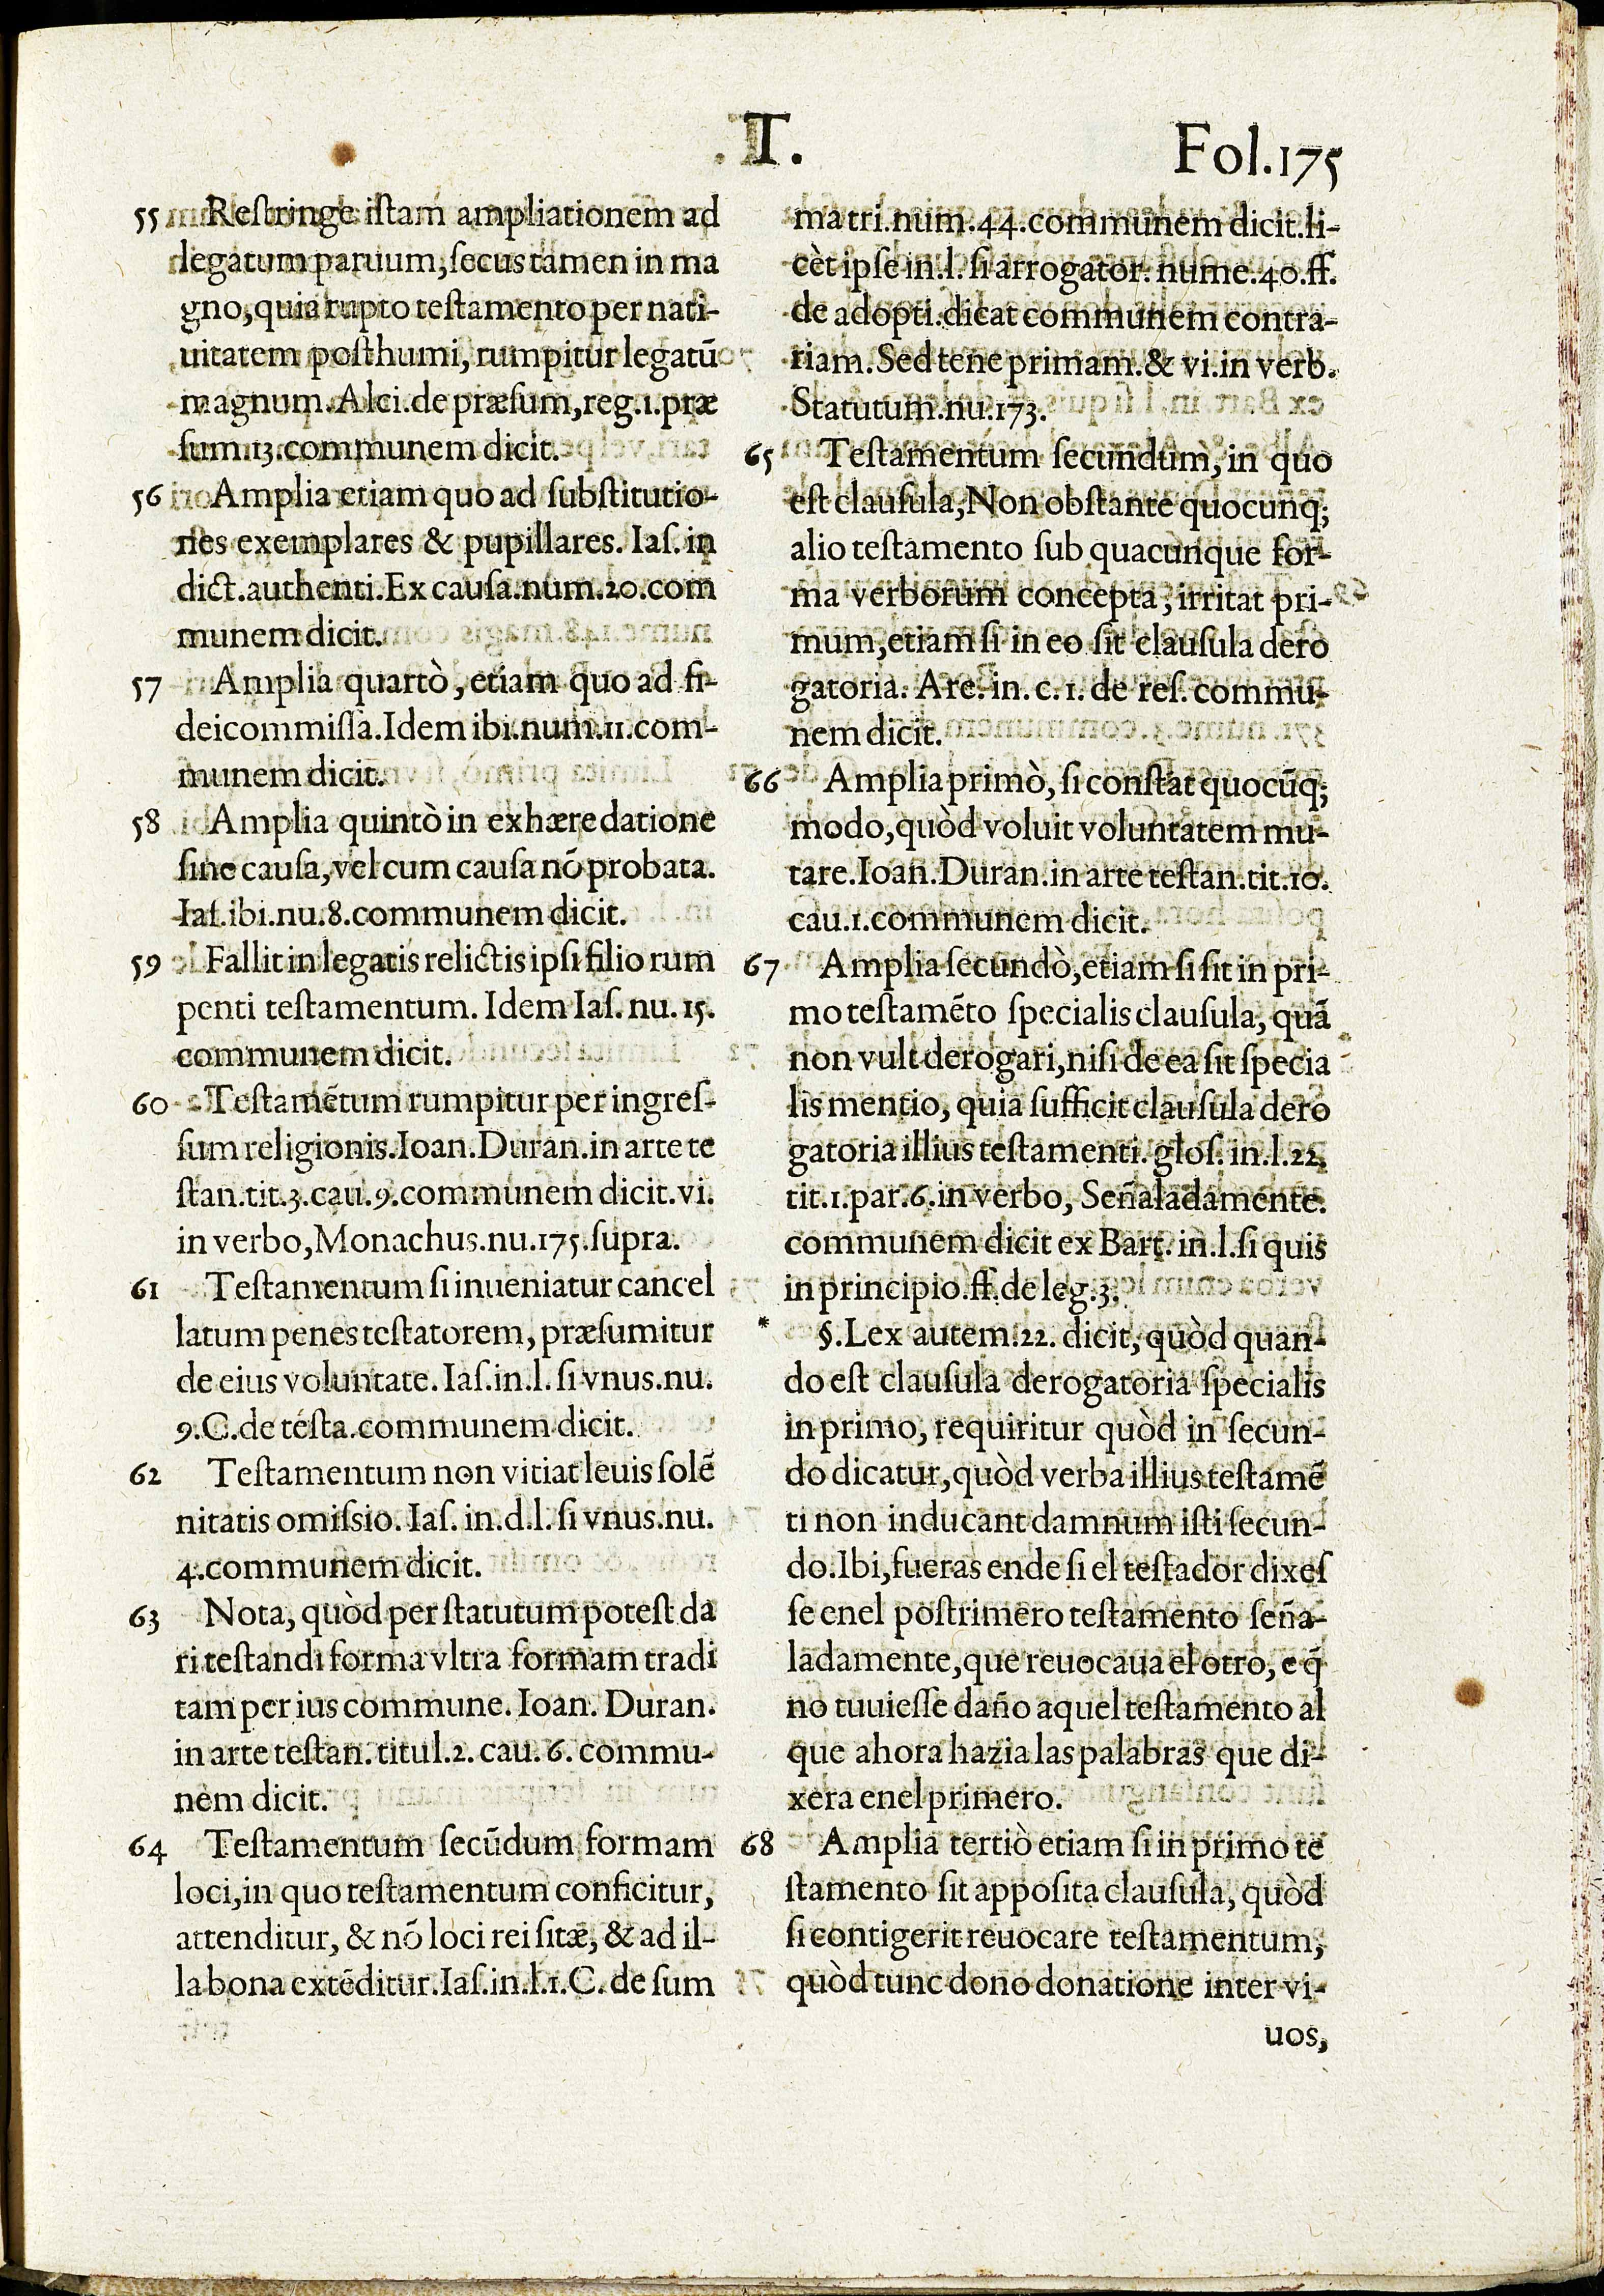 T.
Fol.175
55 Restringe istam ampliationem ad
legatum paruum, secus tamen in ma
gno, quia rupto testamento per nati-
uitatem posthumi, rumpitur legatũ
magnum. Alci. de præsum, reg.1. præ
sum.13. communem dicit.
56 Amplia etiam quo ad substitutio-
nes exemplares & pupillares. Ias. in
dict. authenti. Ex causa. num.20. com
munem dicit.
57 Amplia quartò, etiam quo ad fi-
deicommissa. Idem ibi. num.11. com-
munem dicit.
58 Amplia quintò in exhæredatione
sine causa, vel cum causa nõ probata.
Ias. ibi. nu.8. communem dicit.
59 Fallit in legatis relictis ipsi filio rum
penti testamentum. Idem Ias. nu. 15.
communem dicit.
60 Testamẽtum rumpitur per ingres-
sum religionis. Ioan. Duran. in arte te
stan. tit.3. cau.9. communem dicit. vi.
in verbo, Monachus. nu.175. supra.
61 Testamentum si inueniatur cancel
latum penes testatorem, præsumitur
de eius voluntate. Ias. in. l. si vnus. nu.
9. C. de testa. communem dicit.
62 Testamentum non vitiat leuis solẽ
nitatis omissio. Ias. in. d. l. si vnus. nu.
4. communem dicit.
63 Nota, quòd per statutum potest da
ri testandi forma vltra formam tradi
tam per ius commune. Ioan. Duran.
in arte testan. titul.2. cau. 6. commu-
nem dicit.
64 Testamentum secũdum formam
loci, in quo testamentum conficitur,
attenditur, & nõ loci rei sitæ, & ad il-
la bona extẽditur. Ias. in. l.1. C. de sum
ma tri. num.44. communem dicit. li-
cèt ipse in. l. si arrogator. nume.40. ff.
de adopti. dicat communem contra-
riam. Sed tene primam. & vi. in verb.
Statutum. nu.173.
65 Testamentum secundum, in quo
est clausula, Non obstante quocunq;
alio testamento sub quacunque for-
ma verborum concepta, irritat pri-
mum, etiam si in eo sit clausula dero
gatoria. Are. in. c. 1. de res. commu-
nem dicit.
66 Amplia primò, si constat quocũq;
modo, quòd voluit voluntatem mu-
tare. Ioan. Duran. in arte testan. tit.10.
cau.1. communem dicit.
67 Amplia secundò, etiam si sit in pri-
mo testamẽto specialis clausula, quã
non vult derogari, nisi de ea sit specia
lis mentio, quia sufficit clausula dero
gatoria illius testamenti. glos. in. l.22.
tit.1. par.6. in verbo, Señaladamente.
communem dicit ex Bart. in. l. si quis
in principio. ff. de leg.3.
* §. Lex autem.22. dicit, quòd quan-
do est clausula derogatoria specialis
in primo, requiritur quòd in secun-
do dicatur, quòd verba illius testamẽ
ti non inducant damnum isti secun-
do. Ibi, fueras ende si el testador dixes
se enel postrimero testamento seña-
ladamente, que reuocaua el otro, e q̃
no tuuiesse daño aquel testamento al
que ahora hazia las palabras que di-
xera enel primero.
68 Amplia tertiò etiam si in primo te
stamento sit apposita clausula, quòd
si contigerit reuocare testamentum,
quòd tunc dono donatione inter vi-
uos,